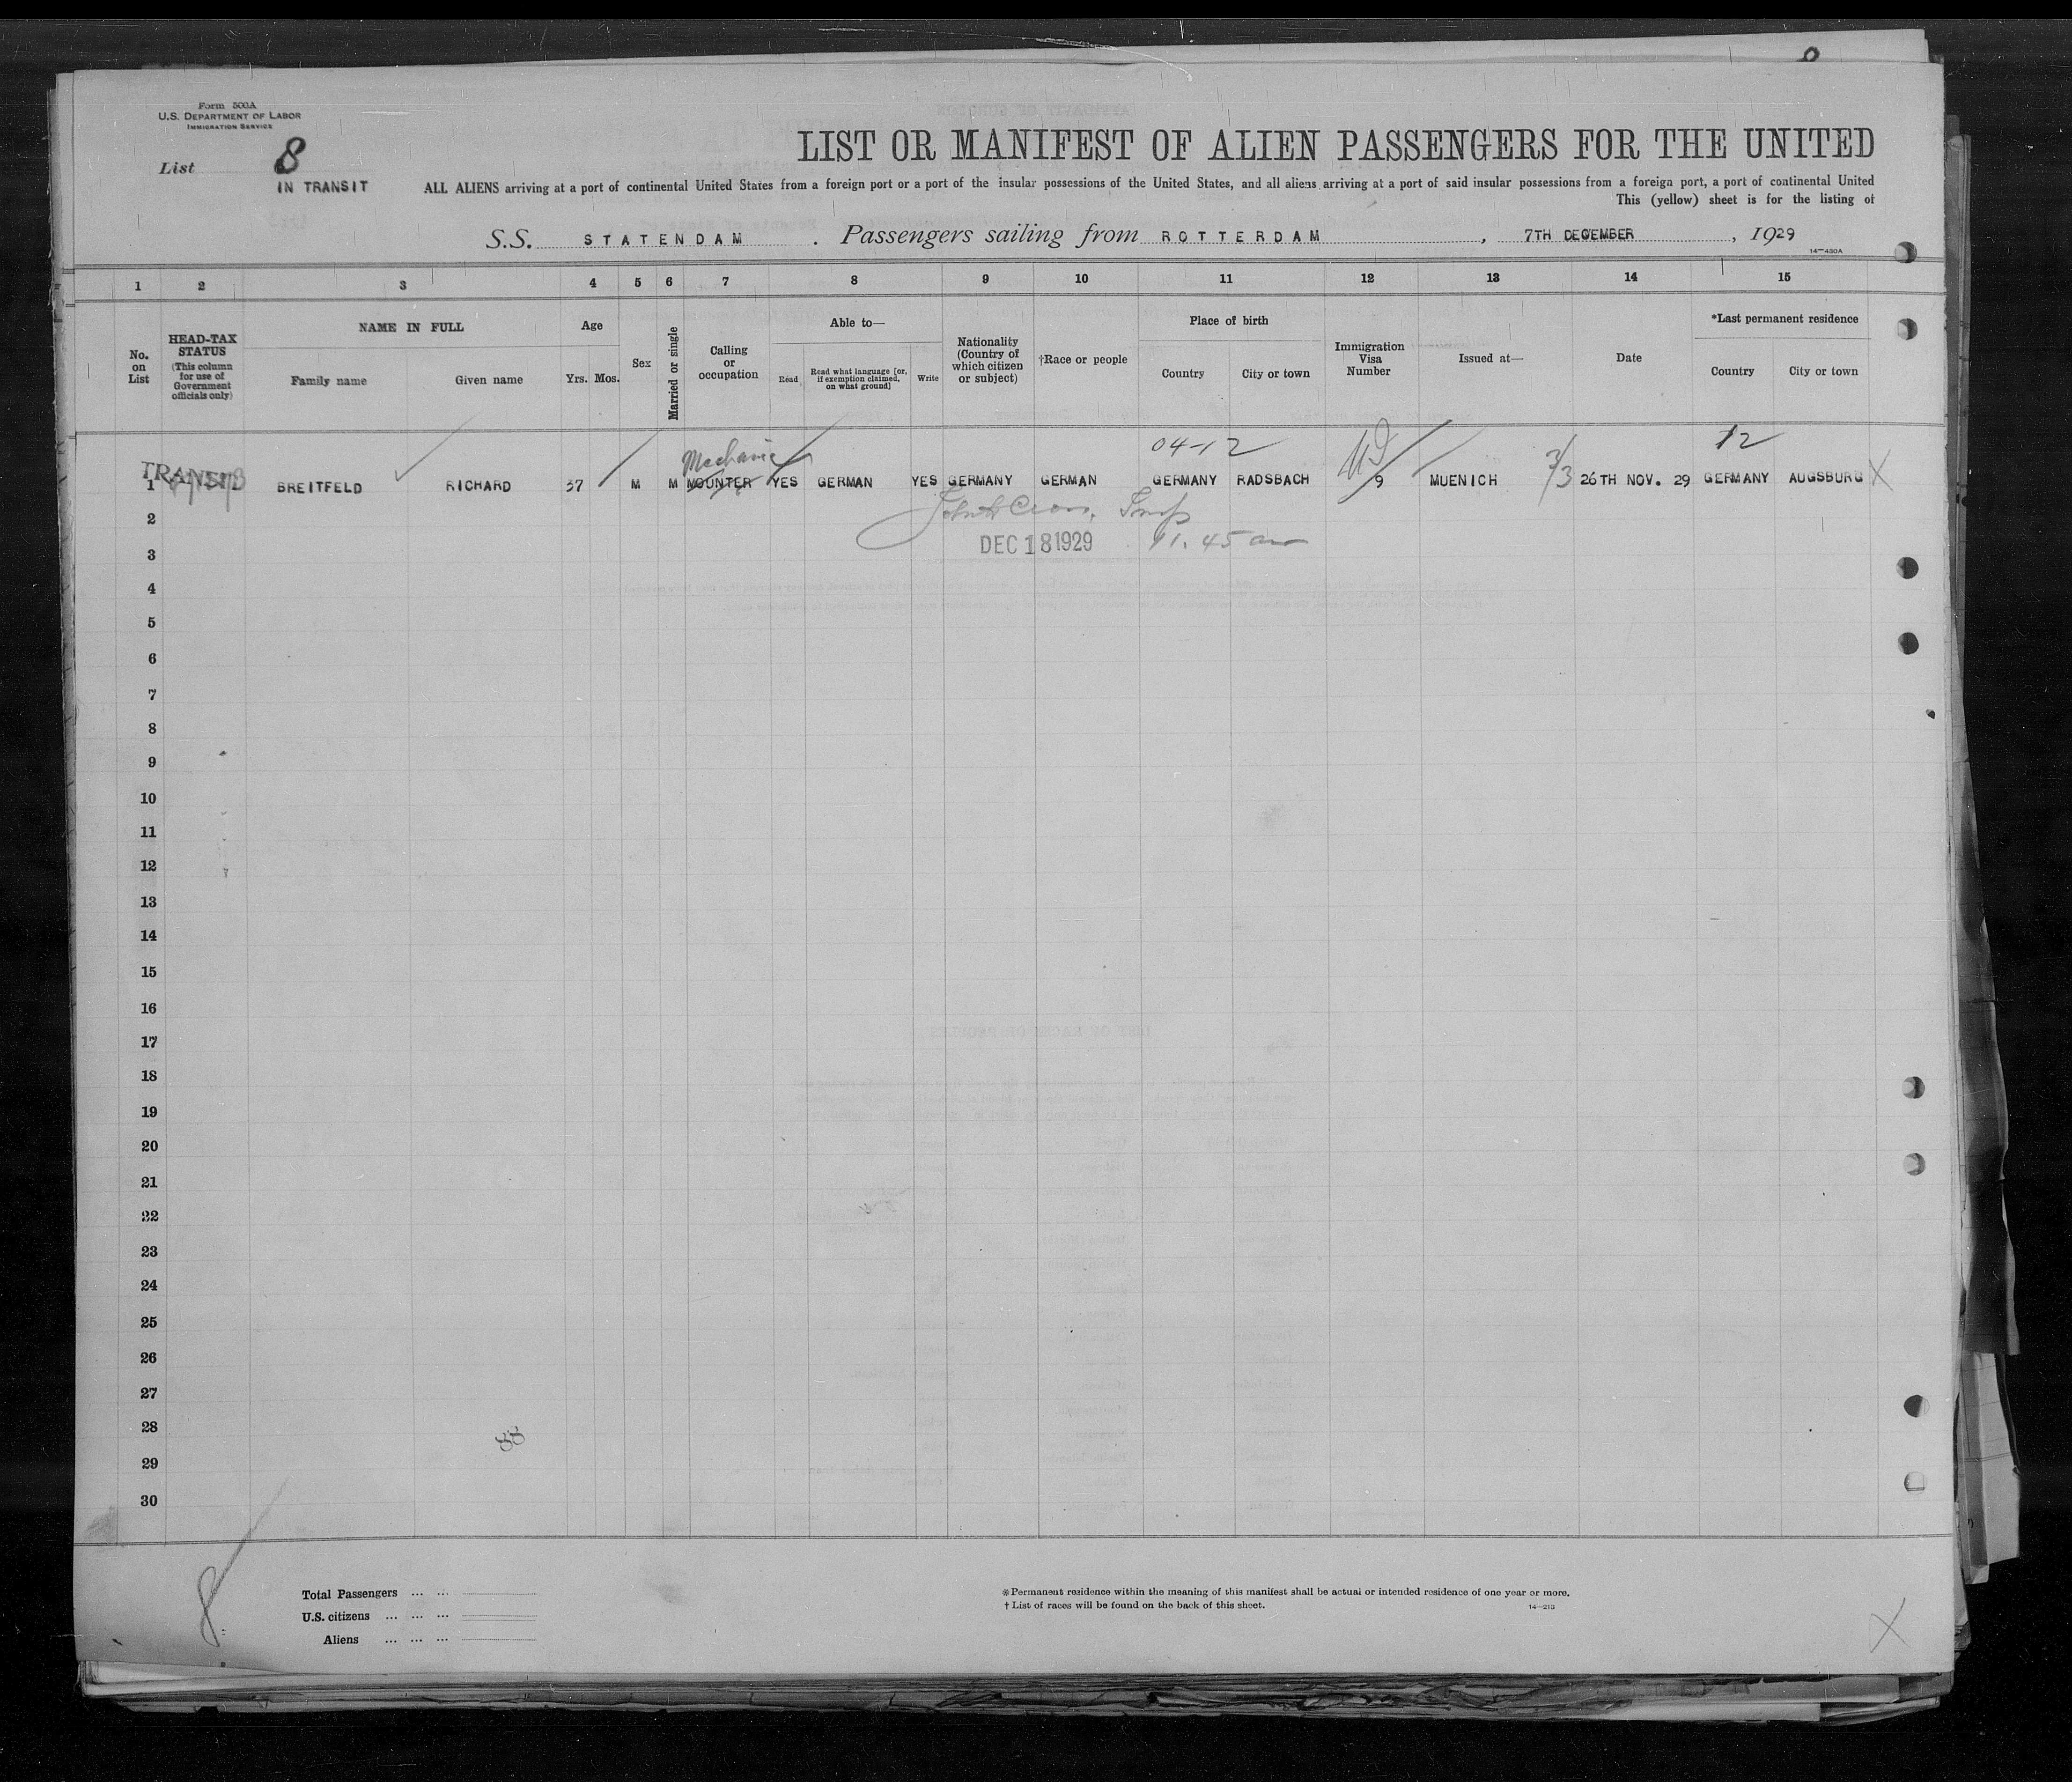 8
Form 500A
U.S. DEPARTMENT OF LABOR
IMMIGRATION SERVICE
List 8
IN TRANSIT
LIST OR MANIFEST OF ALIEN PASSENGERS FOR THE UNITED
ALL ALIENS arriving at a port of continental United States from a foreign port or a port of the insular possessions of the United States, and all aliens arriving at a port of said insular possessions from a foreign port, a port of continental United
This (yellow) sheet is for the listing of
S.S. STATENDAM . Passengers sailing from ROTTERDAM , 7TH DECEMBER , 1929
14—430A
1 2 3 4 5 6 7 8 9 10 11 12 13 14 15
No. on List
HEAD-TAX STATUS (This column for use of Government officials only)
NAME IN FULL
Family name Given name
Age
Yrs. Mos.
Sex
Married or single
Calling or occupation
Able to—
Read
Read what language [or, if exemption claimed, on what ground]
Write
Nationality (Country of which citizen or subject)
†Race or people
Place of birth
Country City or town
Immigration Visa Number
Issued at—
Date
*Last permanent residence
Country City or town
Mechanic 04-12 12
TRANSIT
1 BREITFELD RICHARD 37 M M MOUNTER YES GERMAN YES GERMANY GERMAN GERMANY RADSBACH 9 MUENICH 3/3 26TH NOV. 29 GERMANY AUGSBURG X
2
DEC 18 1929 11.45 am
3
4
5
6
7
8
9
10
11
12
13
14
15
16
17
18
19
20
21
22
23
24
25
26
27
28
88
29
30
8
Total Passengers ... ...
U.S. citizens ... ... ...
Aliens ... ... ...
*Permanent residence within the meaning of this manifest shall be actual or intended residence of one year or more.
† List of races will be found on the back of this sheet.
14—213
X